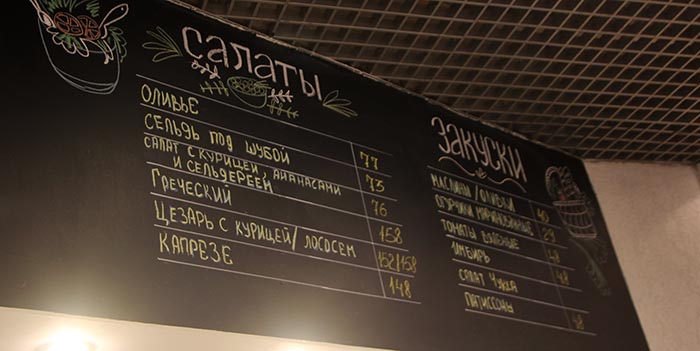 САЛАТЫ
ОЛИВЬЕ 77
СЕЛЬДЬ ПОД ШУБОЙ 73
САЛАТ С КУРИЦЕЙ, АНАНАСАМИ
И СЕЛЬДЕРЕЕМ 76
ГРЕЧЕСКИЙ 158
ЦЕЗАРЬ С КУРИЦЕЙ/ЛОСОСЕМ 152/158
КАПРЕЗЕ 148
ЗАКУСКИ
МАСЛИНЫ/ОЛИВКИ 40
ОГУРЧИКИ МАРИНОВАННЫЕ 29
ТОМАТЫ ВЯЛЕНЫЕ 48
ИМБИРЬ 48
САЛАТ ЧУККА
ПАТИССОНЫ 48